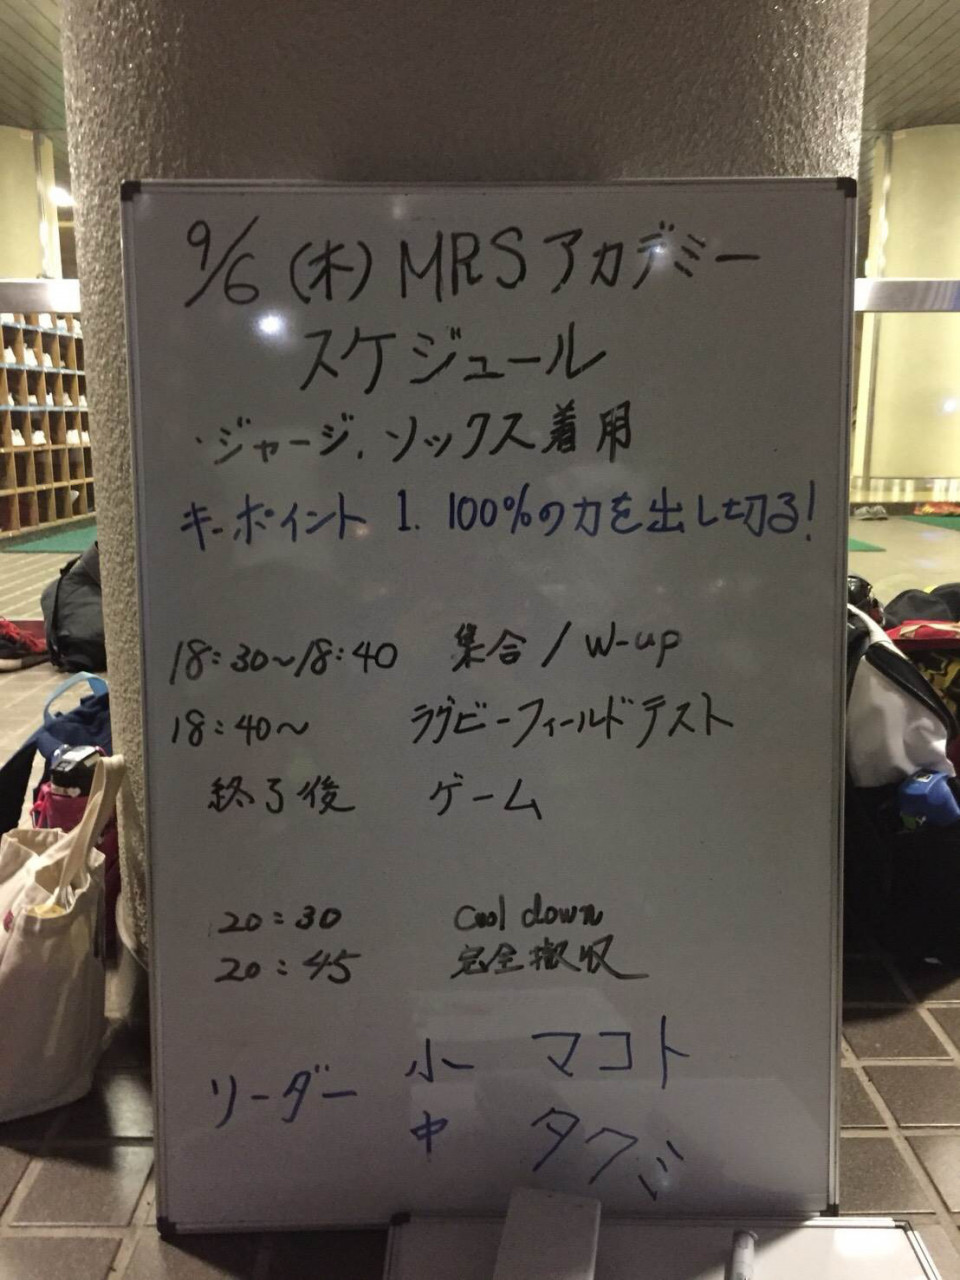 9/6 (木) MRS アカデミー
スケジュール
・ジャージ, ソックス着用
キーポイント 1. 100%の力を出し切る!
18:30~18:40 集合/W-up
18:40~ ラグビーフィールドテスト
終了後 ゲーム
20:30 Cool down
20:45 完全撤収
リーダー 小 マコト
中